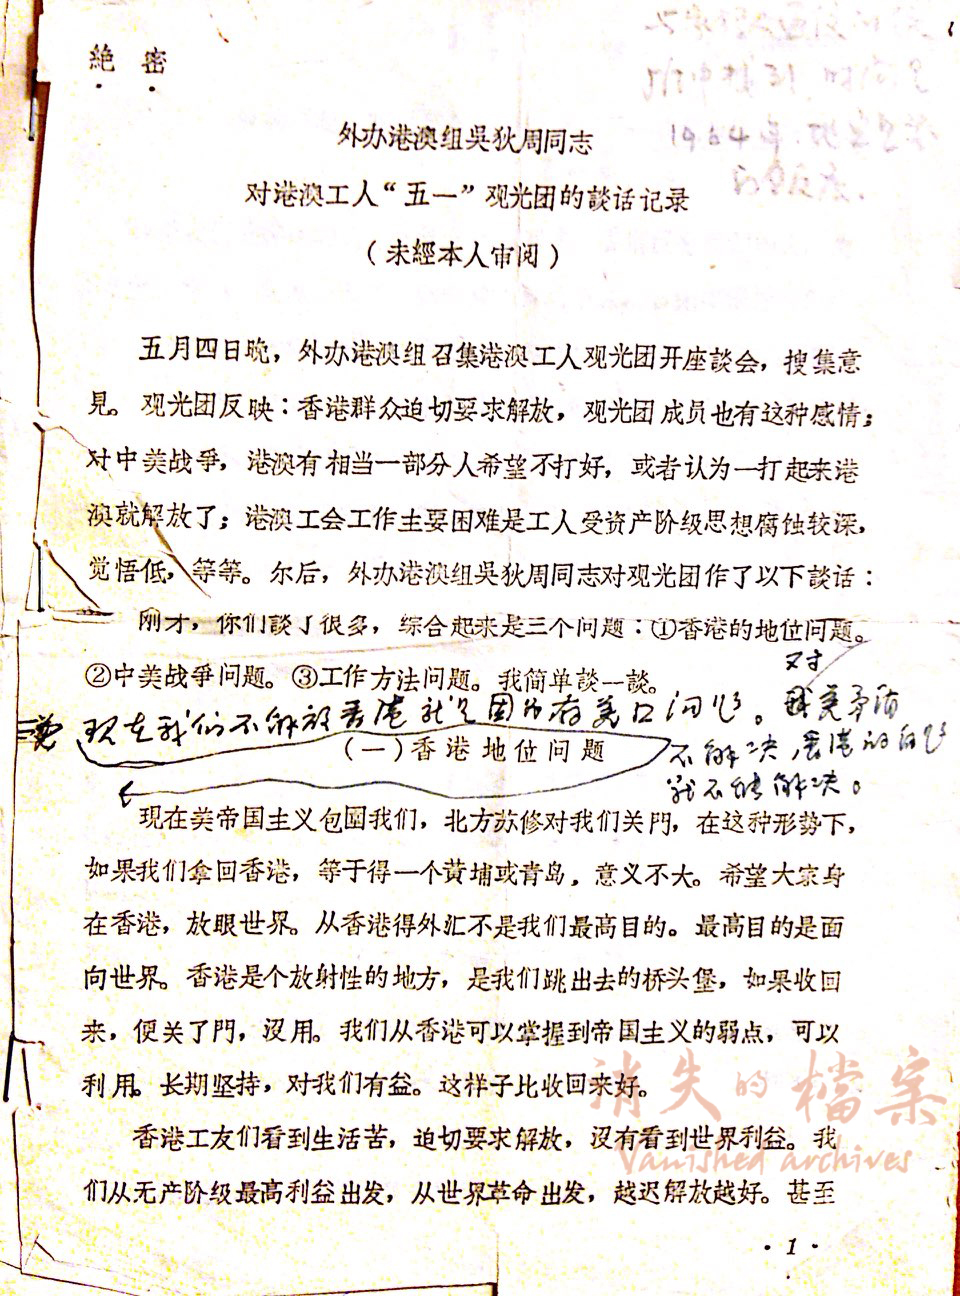 絶密
外办港澳组吳狄周同志
对港澳工人“五一”观光团的談话记录
(未經本人审阅)
五月四日晚，外办港澳组召集港澳工人观光团开座談会，搜集意
見。观光团反映：香港群众迫切要求解放，观光团成员也有这种感情；
对中美战爭，港澳有相当一部分人希望不打好，或者认为一打起来港
澳就解放了；港澳工会工作主要困难是工人受资产阶级思想腐蚀较深，
觉悟低，等等。尔后，外办港澳组吳狄周同志对观光团作了以下談话：
刚才，你们談了很多，综合起来是三个问题：①香港的地位问题。
②中美战爭问题。③工作方法问题。我简单談一談。
现在我们不解放香港就是因为存美囗问题。对美矛盾
不解决，香港的问题
就不能解决。
(一)香港地位问题
现在美帝国主义包圍我们，北方苏修对我们关門，在这种形势下，
如果我们拿回香港，等于得一个黄埔或青岛，意义不大。希望大家身
在香港，放眼世界。从香港得外汇不是我们最高目的。最高目的是面
向世界。香港是个放射性的地方，是我们跳出去的桥头堡，如果收回
来，便关了門，沒用。我们从香港可以掌握到帝国主义的弱点，可以
利用。长期坚持，对我们有益。这样子比收回来好。
香港工友们看到生活苦，迫切要求解放，沒有看到世界利益。我
们从无产阶级最高利益出发，从世界革命出发，越迟解放越好。甚至
消失的檔案
Vanished archives
·1·